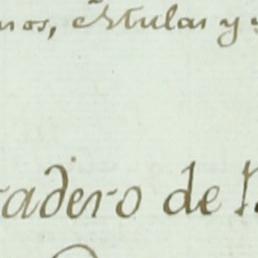 nos, éstulas y
radero de